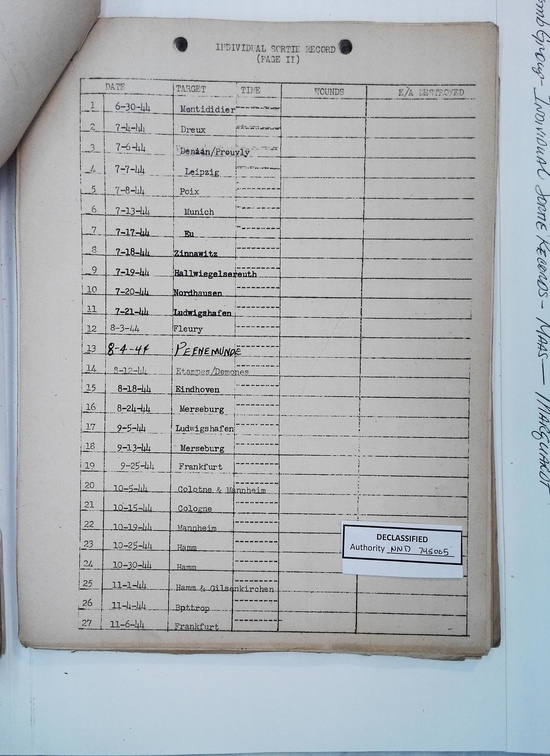 INDIVIDUAL SORTIE RECORD
(PAGE II)
DATE TARGET TIME WOUNDS E/A DESTROYED
1 6-30-44 Montididier
2 7-4-44 Dreux
3 7-6-44 Denain/Prouvly
4 7-7-44 Leipzig
5 7-8-44 Poix
6 7-13-44 Munich
7 7-17-44 Eu
8 7-18-44 Zinnawitz
9 7-19-44 Hallwiegelsereuth
10 7-20-44 Nordhausen
11 7-21-44 Ludwigshafen
12 8-3-44 Fleury
13 8-4-44 PEENEMUNDE
14 8-12-44 Etampes/
15 8-18-44 Eindhoven
16 8-24-44 Merseburg
17 9-5-44 Ludwigshafen
18 9-13-44 Merseburg
19 9-25-44 Frankfurt
20 10-5-44 Colotne & Mannheim
21 10-15-44 Cologne
22 10-19-44 Mannheim
23 10-25-44 Hamm
24 10-30-44 Hamm
25 11-1-44 Hamm & Gilsenkirchen
26 11-4-44 Bpttrop
27 11-6-44 Frankfurt
DECLASSIFIED
Authority NND 745005
Group - INDIVIDUAL SORTIE RECORDS - MAAS — MARQUARDT